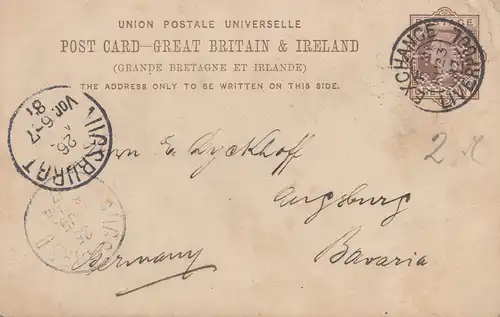 UNION POSTALE UNIVERSELLE
POST CARD—GREAT BRITAIN & IRELAND
(GRANDE BRETAGNE ET IRLANDE)
THE ADDRESS ONLY TO BE WRITTEN ON THIS SIDE.
POSTAGE
EXCHANGE
LIVERPOOL
AUGSBURG
Vor. 6-7
26.
Herrn E. Dyckhoff
Augsburg
Germany
Bavaria
2